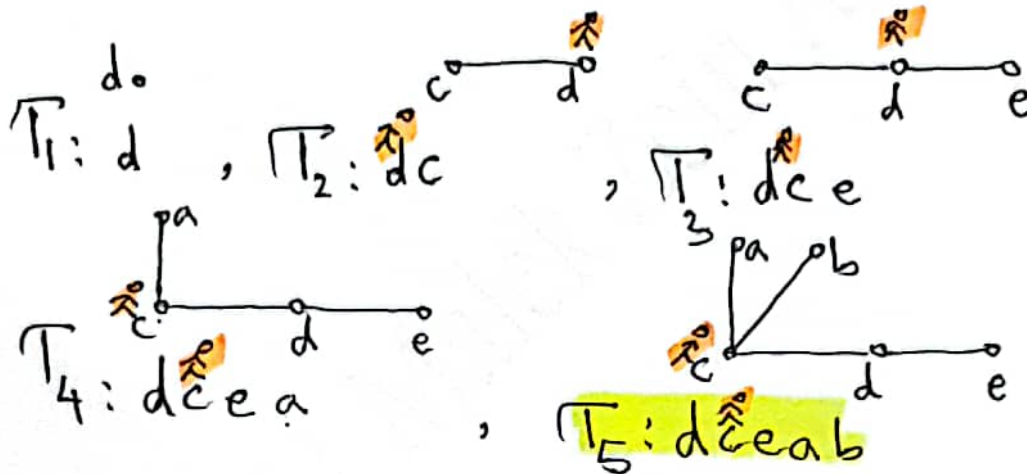 d
c d c d e
T₁: d , T₂: dc , T₃: dce
a a b
c d e c d e
T₄: dcea , T₅: dceab